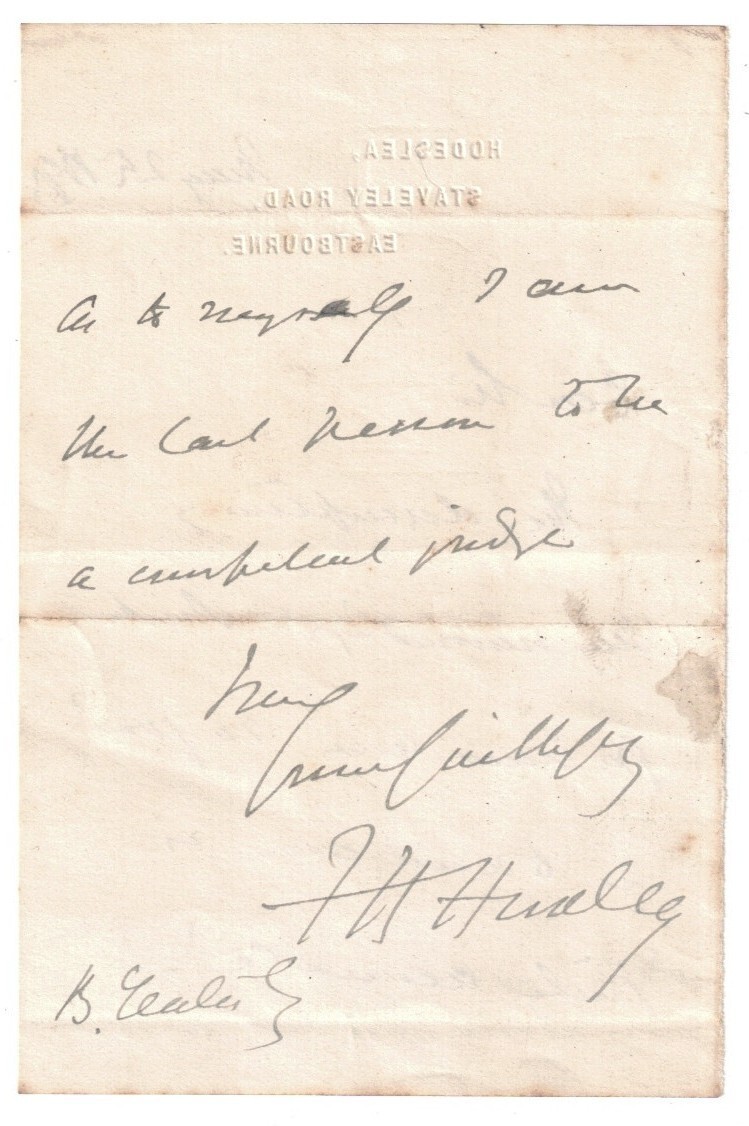 HODESLEA,
STAVELEY ROAD
EASTBOURNE.
As to myself I am
the last person to be
a competent judge
I am
yours faithfully
T H Huxley
B.